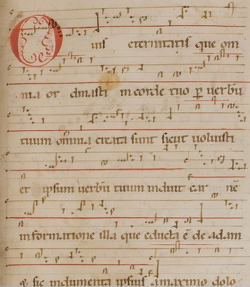 O uis eternitatis que om
nia ordinasti in corde tuo p uerbu
tuum omnia creata sunt sicut uoluisti
et ipsum uerbu tuum induit car ne
in formatione illa que educta e de adam
et sic indumenta ipsius a maximo dolo